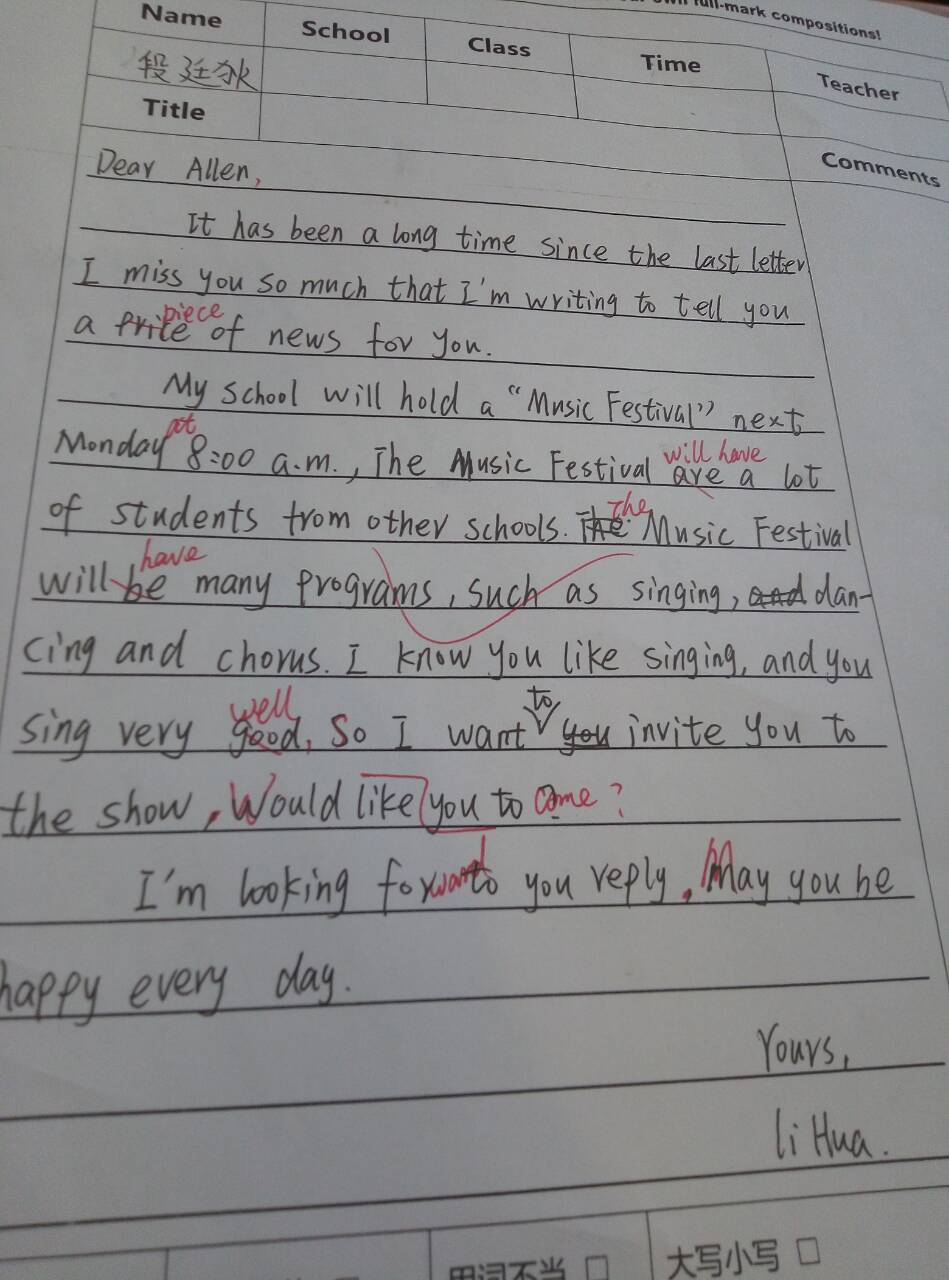 own full-mark compositions!
Name School Class Time Teacher
段廷
Title
Comments
Dear Allen,
It has been a long time since the last letter
I miss you so much that I'm writing to tell you
piece
a of news for you.
My school will hold a “Music Festival” next
at
Monday 8:00 a.m., The Music Festival are a lot
will have
of students from other schools. The Music Festival
The
have
will be many programs, such as singing, and dan-
cing and chorus. I know you like singing, and you
well to
sing very good, So I want you invite you to
the show, Would like you to come?
I'm looking forward to you reply, May you be
happy every day.
Yours,
li Hua.
用词不当 □ 大写小写 □